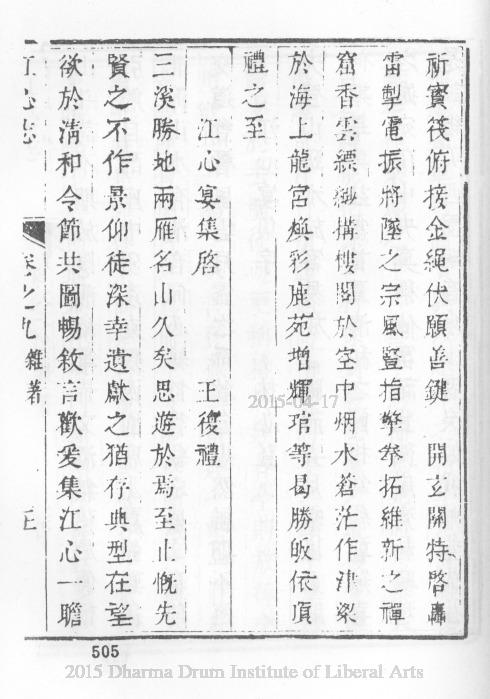 祈寶筏俯接金繩伏願善鍵　開玄關特啓轟
雷掣電振將墜之宗風豎指擎拳拓維新之禪
窟香雲縹緲搆樓閣於空中烟水蒼茫作津梁
於海上龍宮煥彩鹿苑增輝琯等曷勝皈依頂
禮之至
江心宴集啓　王復禮
三溪勝地兩雁名山久矣思遊於焉至止慨先
賢之不作景仰徒深幸遺獻之猶存典型在望
欲於清和令節共圖暢敘言歡爰集江心一瞻
江心志　卷之九　雜著
2015-04-17
505
2015 Dharma Drum Institute of Liberal Arts